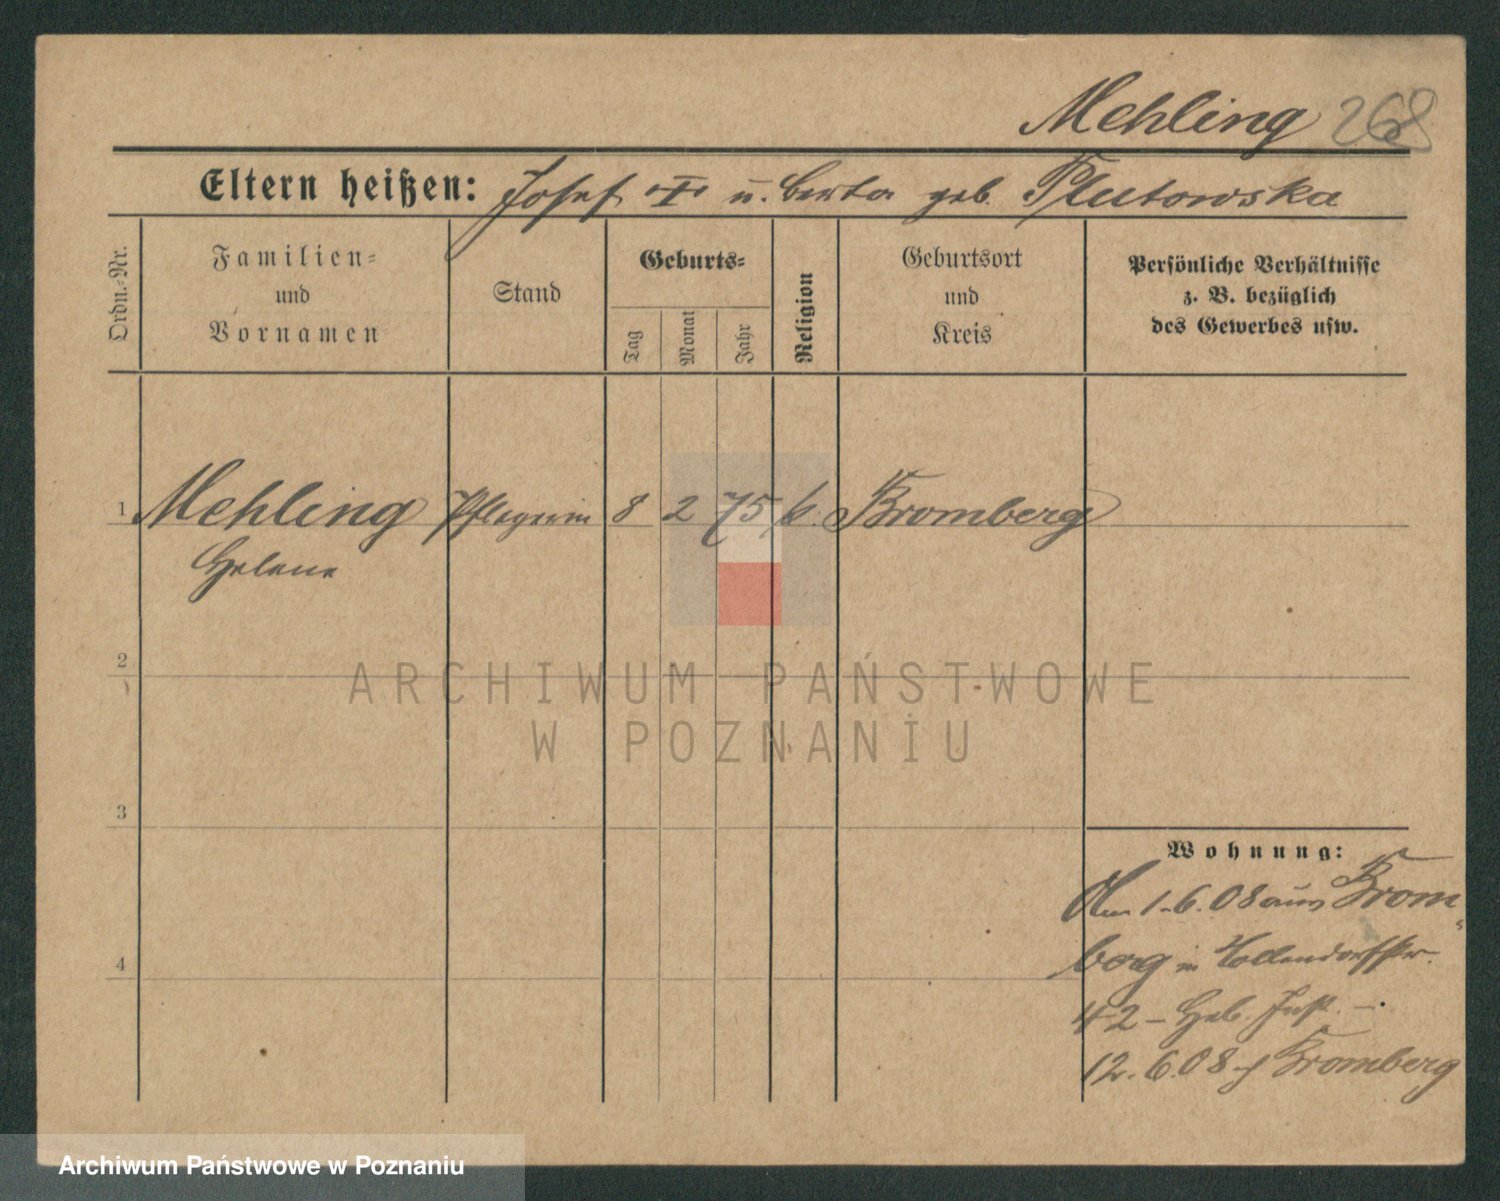 Mehling 268
Eltern heißen: Josef † u. Berta geb. Plutowska
Ordn.-Nr.
Familien-
und
Vornamen
Stand
Geburts-
Tag
Monat
Jahr
Religion
Geburtsort
und
Kreis
Persönliche Verhältnisse
z. B. bezüglich
des Gewerbes usw.
1 Mehling Pflegerin 8 2 75 k. Bromberg
Helene
2
ARCHIWUM PAŃSTWOWE
W POZNANIU
3
Wohnung:
Am 1.6.08 aus Brom-
berg in
4
42 - Heb. Inst. -
12.6.08 Bromberg
Archiwum Państwowe w Poznaniu